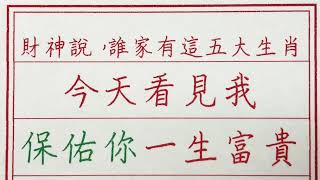 財神說，誰家有這五大生肖
今天看見我
保佑你一生富貴